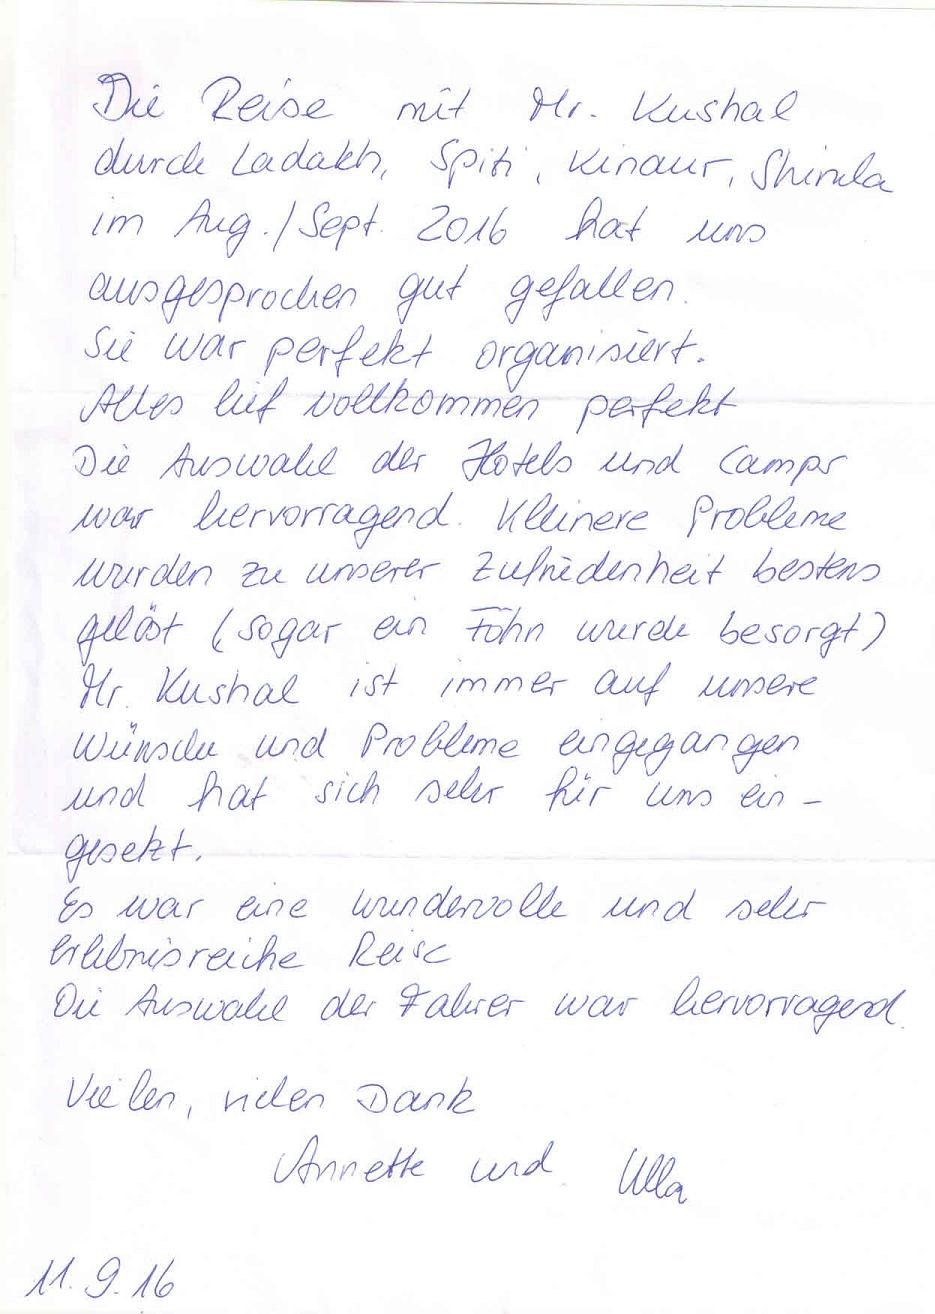 Die Reise mit Mr. Kushal
durch Ladakh, Spiti, Kinaur, Shimla
im Aug./Sept. 2016 hat uns
ausgesprochen gut gefallen.
Sie war perfekt organisiert.
Alles lief vollkommen perfekt
Die Auswahl der Hotels und Camps
war hervorragend. Kleinere Probleme
wurden zu unserer Zufriedenheit bestens
gelöst (sogar ein Föhn wurde besorgt)
Mr. Kushal ist immer auf unsere
Wünsche und Probleme eingegangen
und hat sich sehr für uns ein-
gesetzt.
Es war eine wundervolle und sehr
erlebnisreiche Reise
Die Auswahl der Fahrer war hervorragend.
Vielen, vielen Dank
Annette und Ulla
11.9.16